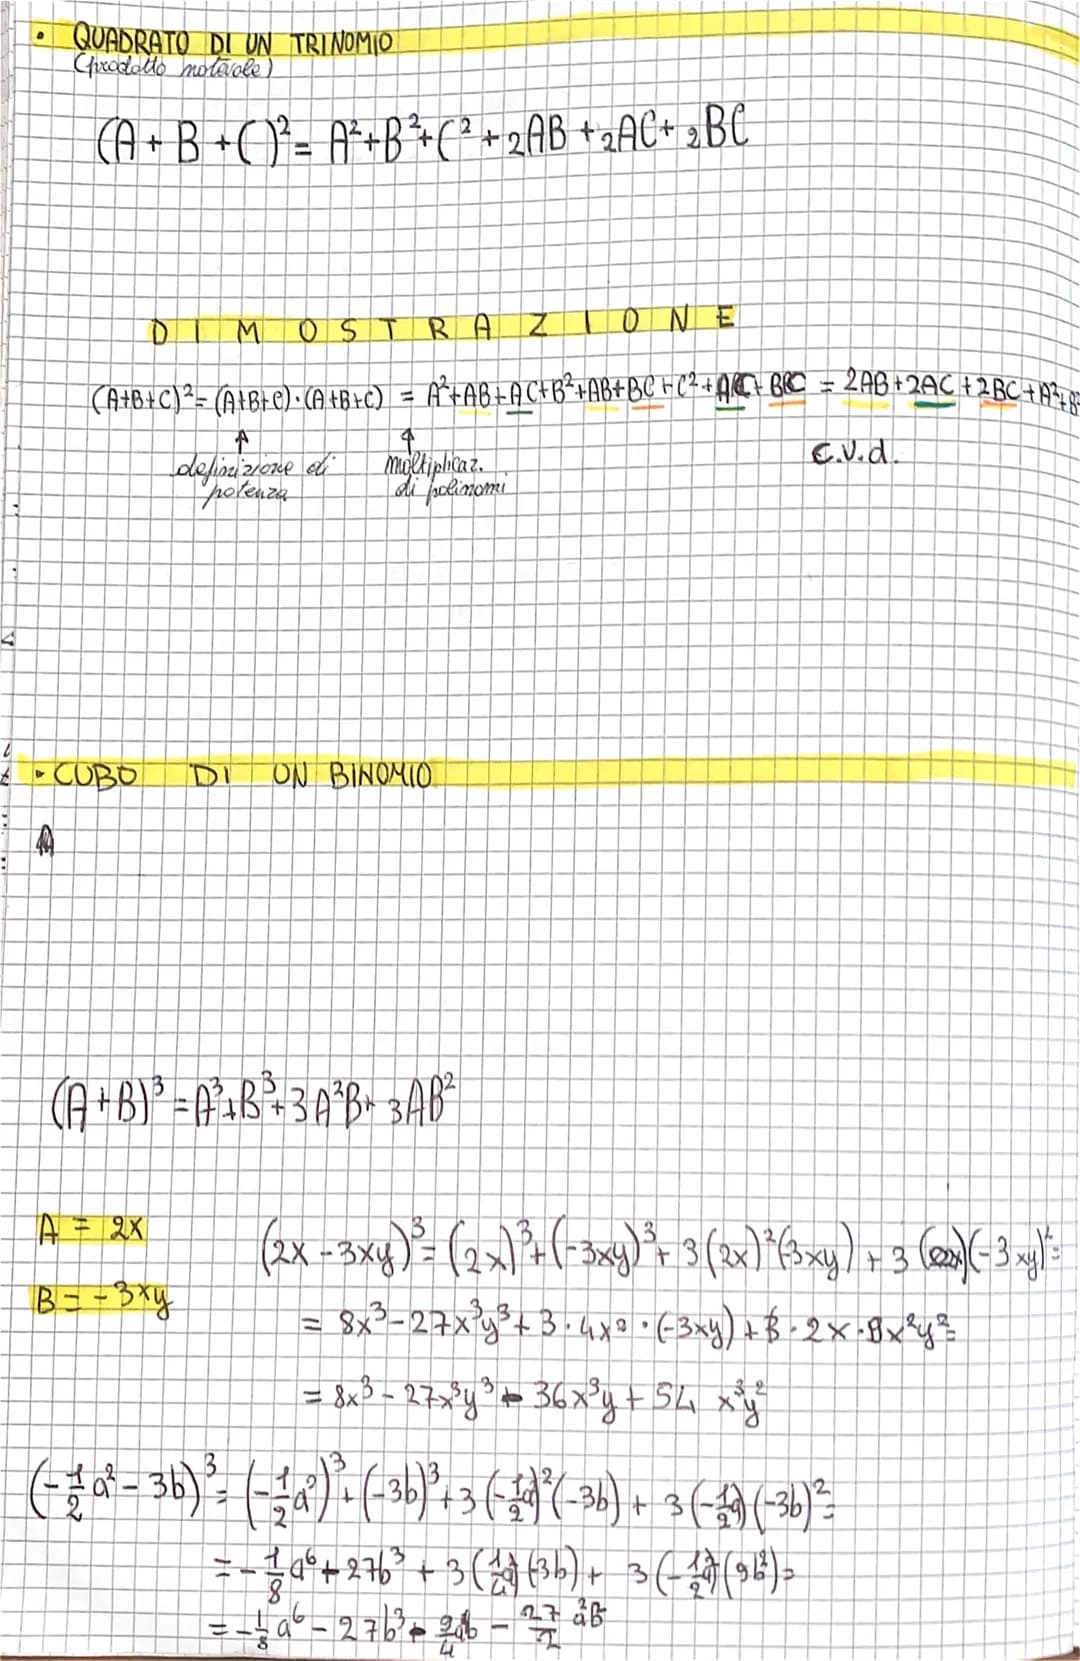 • QUADRATO DI UN TRINOMIO
(prodotto notevole)
(A + B + C)² = A² + B² + C² + 2AB + 2AC + 2BC
DIMOSTRAZIONE
(A+B+C)² = (A+B+C)·(A+B+C) = A²+AB+AC+B²+AB+BC+C²+AC+BC = 2AB+2AC+2BC+A²+B²
↑ ↑
definizione di potenza
moltiplicaz. di polinomi
c.v.d.
• CUBO DI UN BINOMIO
(A+B)³ = A³+B³+3A²B+3AB²
A = 2x
(2x-3xy)³ = (2x)³+(-3xy)³+3(2x)²(-3xy)+3(2x)(-3xy)²=
B = -3xy
= 8x³-27x³y³+3·4x²·(-3xy)+3·2x·9x²y²=
= 8x³-27x³y³-36x³y+54x³y²
(-1/2 a²-3b)³ = (-1/2 a²)³+(-3b)³+3(-1/2 a²)²(-3b)+3(-1/2 a²)(-3b)²=
= -1/8 a⁶+27b³+3( )(-3b)+3( )(9b²)=
= -1/8 a⁶-27b³